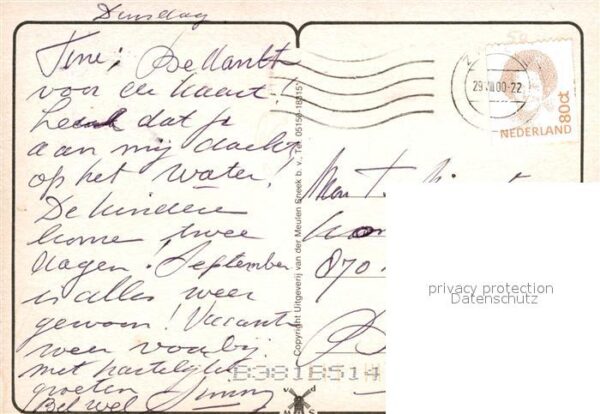 Dinsdag
Tine; Bedankt
voor de kaart!
Leuk dat je
aan mij dacht
op het water!
De kinderen
komen twee
dagen! September
is alles weer
gewoon! Vacantie
weer voorbij
met hartelijke
groeten
Bel wel
Copyright Uitgeverij van der Meulen Sneek b.v., Tel. 05150-18315
29 VIII 00-22
80ct
NEDERLAND
870
privacy protection
Datenschutz
B381B514